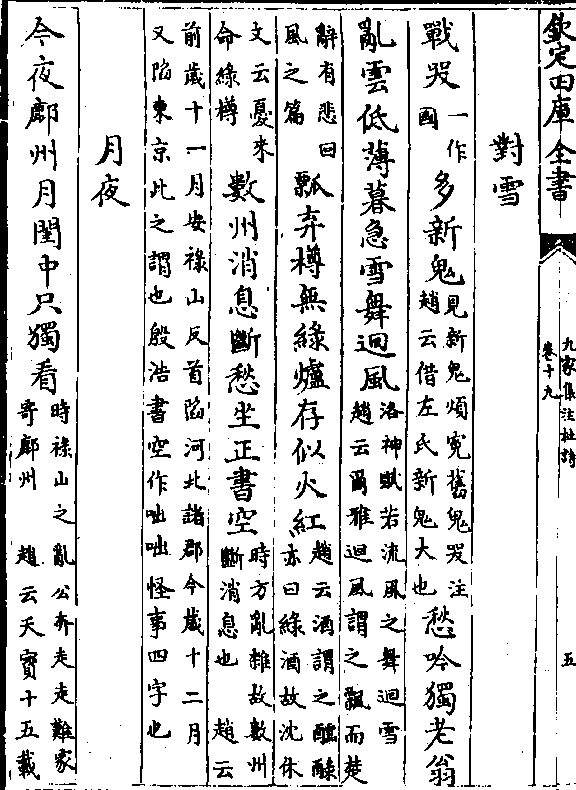 欽定四庫全書
九家集注杜詩
卷十九
五
對雪
戰哭一作國多新鬼見新鬼煩寃舊鬼哭注趙云借左氏新鬼大也愁吟獨老翁
亂雲低薄暮急雪舞迴風洛神賦若流風之舞迴雪趙云爾雅迴風謂之飄而楚
辭有悲回風之篇瓢弃樽無綠爐存似火紅趙云酒謂之醽醁亦曰綠酒故沈休
文云憂來命綠樽數州消息斷愁坐正書空時方亂離故數州斷消息也趙云
前歳十一月安祿山反首陷河北諸郡今歳十二月又陷東京此之謂也殷浩書空作咄咄怪事四字也
月夜
今夜鄜州月閨中只獨看時祿山之亂公奔走走難家寄鄜州趙云天寳十五載